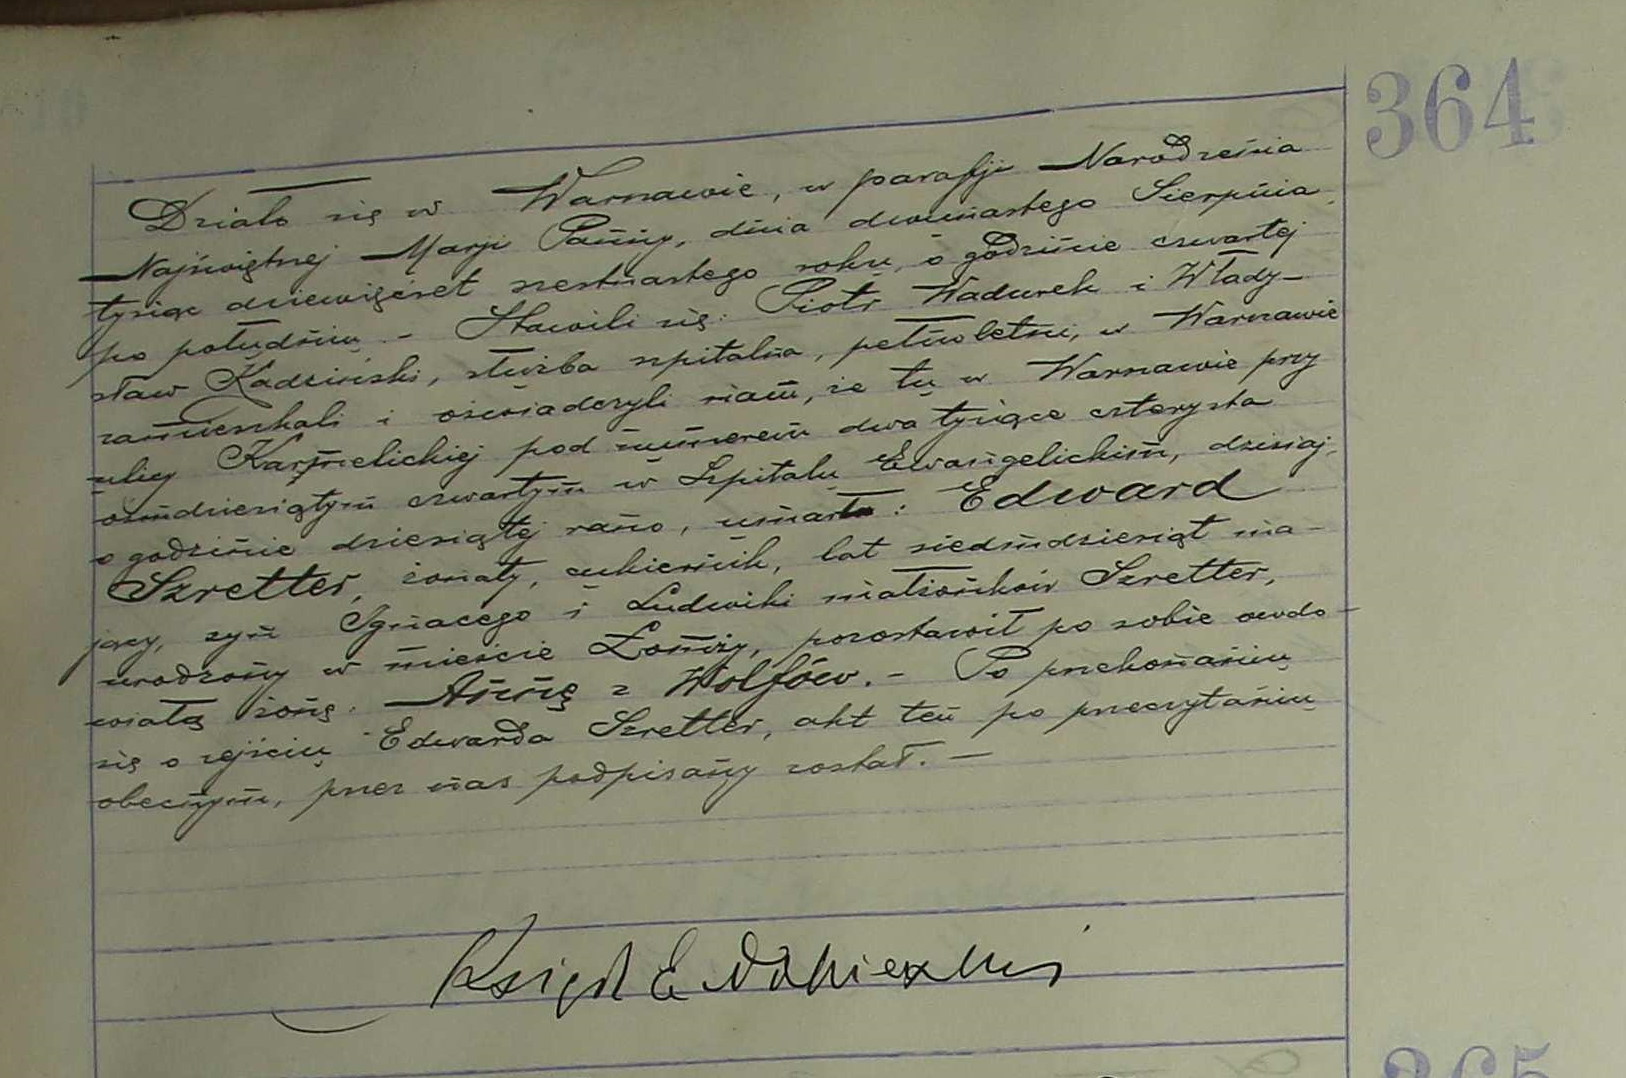 364
Działo się w Warszawie, w parafji Narodzenia
Najświętszej Marji Panny, dnia dwunastego Sierpnia
tysiąc dziewięćset szesnastego roku, o godzinie czwartej
po południu - Stawili się: Piotr Wadurek i Włady-
sław Kadziński, służba szpitalna, pełnoletni, w Warszawie
zamieszkali i oświadczyli nam, że tu w Warszawie przy
ulicy Karmelickiej pod numerem dwa tysiące czterysta
osmdziesiątym czwartym w Szpitalu Ewangelickim, dzisiaj,
o godzinie dziesiątej rano, umarł: Edward
Szretter, żonaty, cukiernik, lat siedmdziesiąt ma-
jący, syn Ignacego i Ludwiki małżonków Szretter,
urodzony w mieście Łomży, pozostawił po sobie owdo-
wiałą żonę. Annę z Wolfów. - Po przekonaniu
się o zejściu Edwarda Szretter, akt ten po przeczytaniu
obecnym, przez nas podpisany został. -
Ksiądz E
365